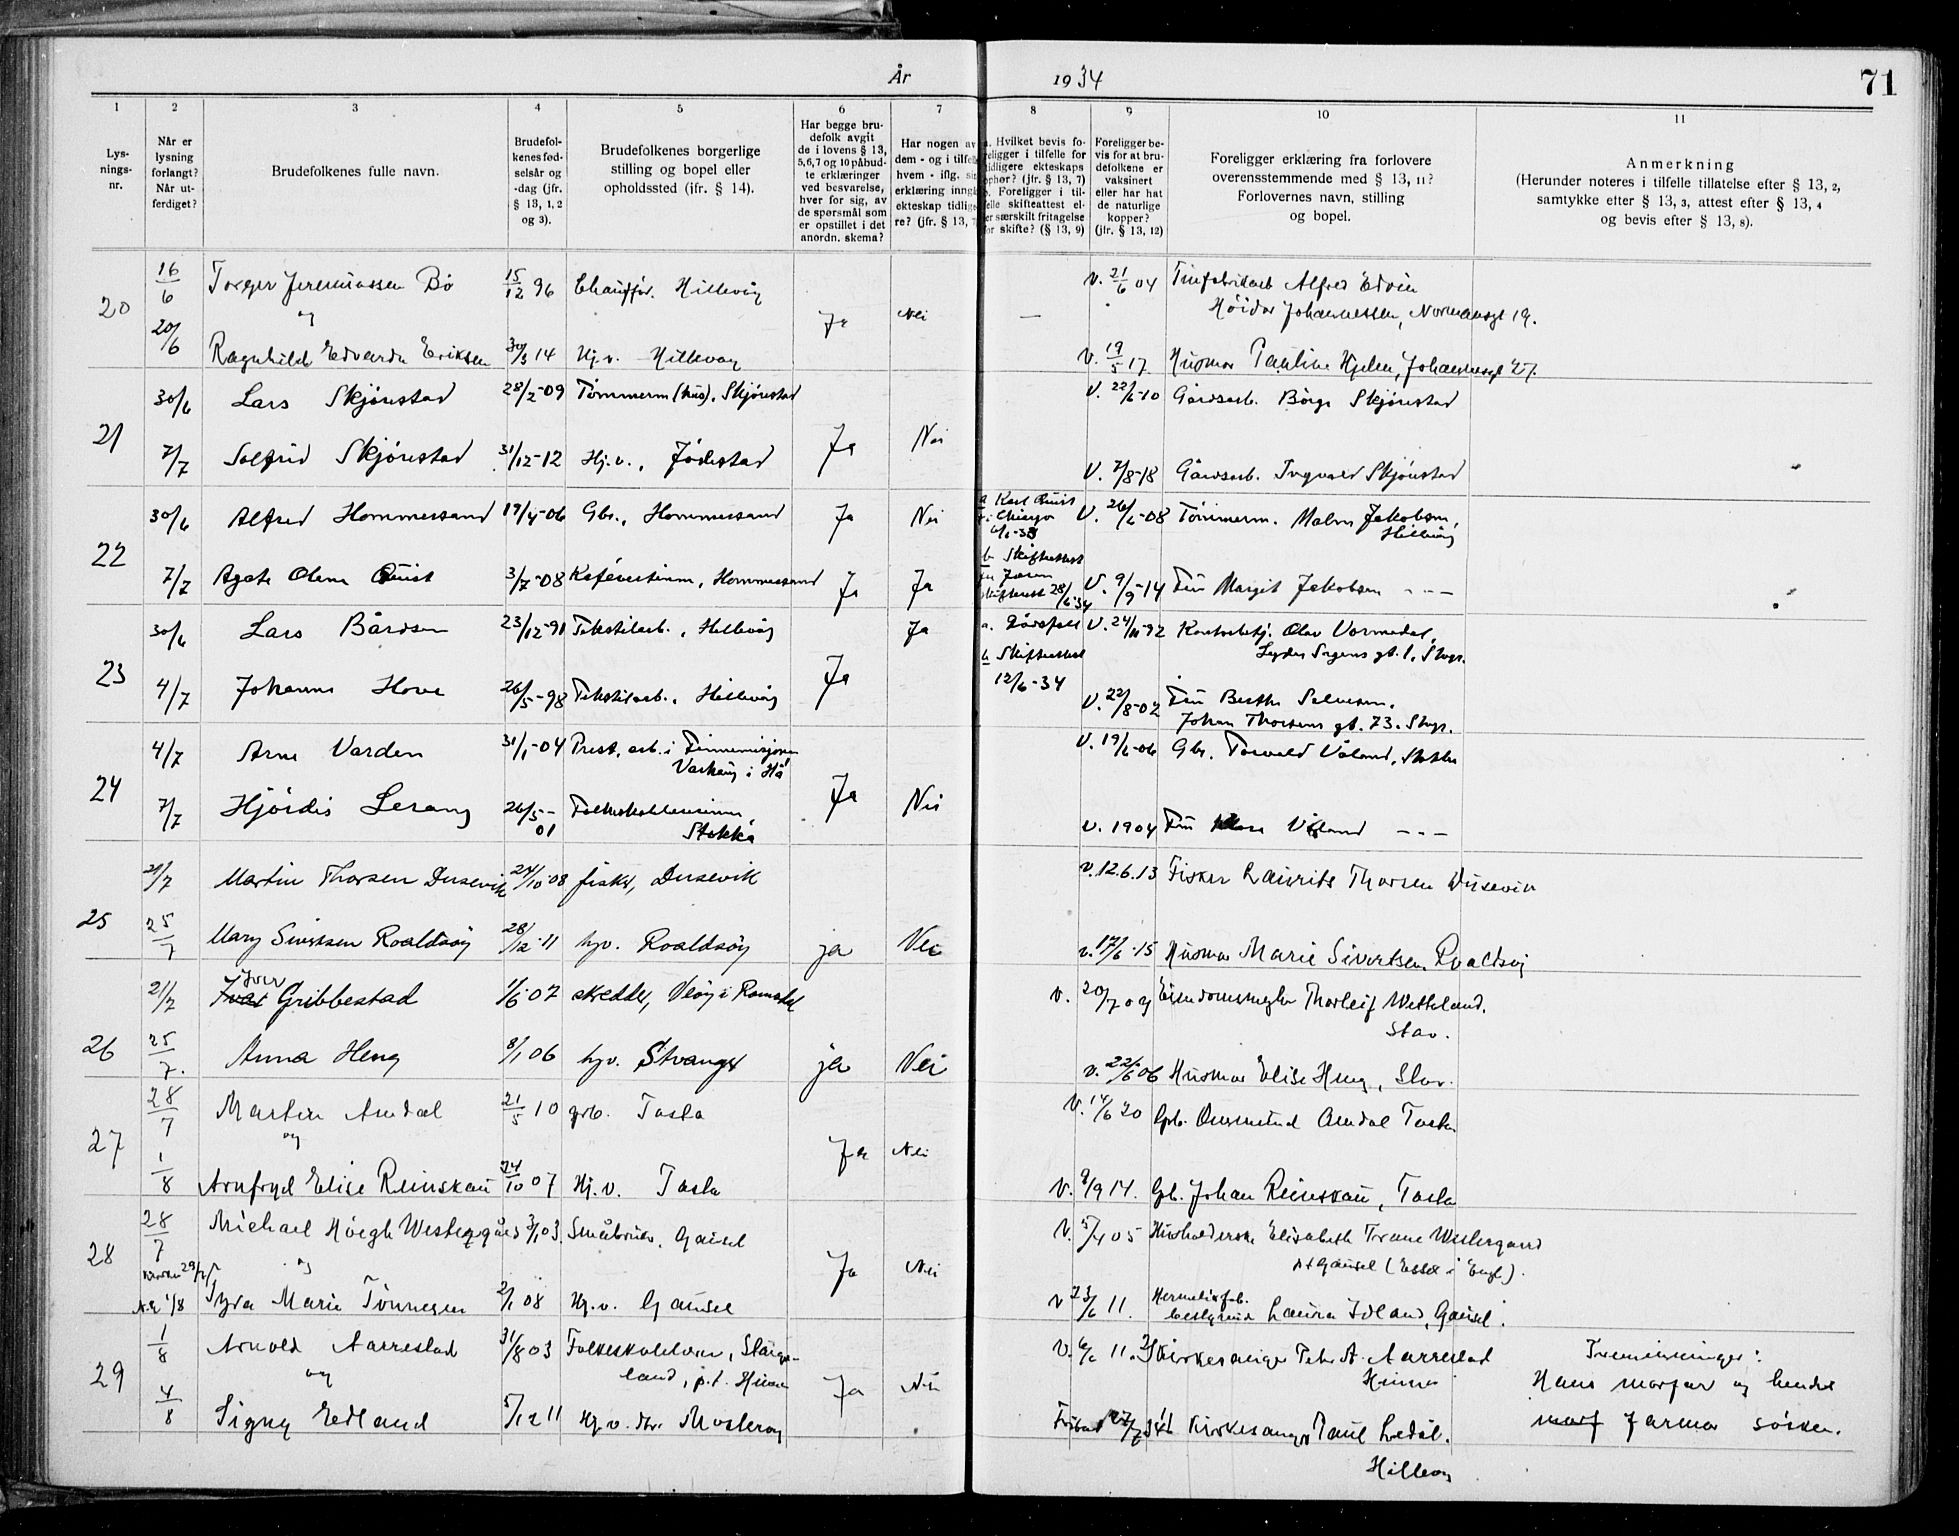 År 1934
71
1 2 3 4 5 6 7 8 9 10 11
Lys-
nings-
nr.
Når er
lysning
forlangt?
Når ut-
ferdiget?
Brudefolkenes fulle navn.
Brudefol-
kenes fød-
selsår og
-dag (jfr.
§ 13, 1, 2
og 3).
Brudefolkenes borgerlige
stilling og bopel eller
opholdssted (ifr. § 14).
Har begge bru-
defolk avgit
de i lovens § 13,
5, 6, 7 og 10 påbud-
te erklæringer
ved besvarelse,
hver for sig, av
de spørsmål som
er opstillet i det
anordn. skema?
Har nogen av
dem - og i tilfelle
hvem - iflg. sin
erklæring inngå
ekteskap tidlige-
re? (jfr. § 13, 7
a. Hvilket bevis fo-
religger i tilfelle for
tidligere ekteskaps
ophør? (jfr. § 13, 7)
b. Foreligger i til-
felle skifteattest el-
ler særskilt fritagelse
for skifte? (§ 13, 9)
Foreligger be-
vis for at bru-
defolkene er
vaksinert
eller har hat
de naturlige
kopper?
(jfr. § 13, 12)
Foreligger erklæring fra forlovere
overensstemmende med § 13, 11?
Forlovernes navn, stilling
og bopel.
Anmerkning
(Herunder noteres i tilfelle tillatelse efter § 13, 2,
samtykke efter § 13, 3, attest efter § 13, 4
og bevis efter § 13, 8).
20 16/6 Torger Jeremiassen Bø 15/12 96 Chauffør. Hillevåg v. 21/6 04 Alfred Edvin
og Ja Nei — Johannessen, Normansgt 19.
20/6 Ragnhild Edvarda Eriksen 30/3 14 Hj.v. Hillevåg v. 19/5 17 Husmor Pauline Hjelm,
21 30/6 Lars Skjørestad 28/2-09 Tømmerm (hus), Skjørestad V. 22/6-10 Gårdsarb. Børge Skjørestad
Ja Nei
7/7 Solfrid Skjørestad 31/12-12 Hj.v., Jødestad V. 7/8-18 Gårdsarb. Ingvald Skjørestad
22 30/6 Alfred Hommersand 19/4-06 Gbr., Hommersand Ja Nei a Karl Quist
i Chicago
6/1-33 V. 26/6-08 Tømmerm. Malm Jakobsen,
Hillevåg
7/7 Agate Olene Quist 3/7-08 Hommersand Ja Ja b Skifteattest
fra Jæren
skifterett 28/6-34 V. 9/9-14 Fru Margit Jakobsen - - -
23 30/6 Lars Bårdsen 23/12-91 Tekstilarb., Hillevåg Ja a. Dødsfall V. 24/11-92 Olav Vormedal,
gt. 1, Stvgr.
Ja b Skifteattest
12/6-34
4/7 Johanne Hove 26/5-98 Tekstilarb., Hillevåg V. 22/8-02 Fru Berthe Salvesen.
Johan Thorsens gt. 73. Stvgr.
24 4/7 Arne Varden 31/1-04 Prest, arb. i Finnemisjonen
Varhaug i Hå V. 19/6-06 Gbr. Torvald Våland, Stokka
Ja Nei
7/7 Hjørdis Lerang 26/5-
01 Folkeskolelærerinne,
Stokka V. 1904 Fru Våland - - -
25 21/7 Martin Thorsen Dusevik 24/10-08 fisker, Dusevik v. 12.6.13 Fisker Laurits Thorsen Dusevik
25/7 Mary Sivertsen Roaldsøy 28/12-11 hjv. Roaldsøy ja Nei v. 17/6-15 Husmor Marie Sivertsen Roaldsøy
26 21/7 Iver
Ivar Gribbestad 1/6-07 skredder, Veøy i Romsdal v. 20/7 09 Eiendomsmegler Thorleif Wetteland.
Stav.
25/7. Anna Heng 8/1 06 hjv. Stvanger ja Nei v. 22/6 06 Husmor Elise Heng, Stav.
27 28/7 Martin Amdal 21/5 10 grb. Tasta V. 14/6 20 Grb. Aamdal Tasta
og Ja Nei
1/8 Arnfryd Elise Reinskau 24/10 07 Hj.v. Tasta V. 9/9 14. Gb. Johan Reinskau, Tasta
28 28/7 Michael Høegh Westergård 3/1 03. Småbruker, Gausel V. 5/4 05 Husholderske Elisabeth Trane Westergaard
Gausel (Essex i Engl).
og Ja Nei
1/8 Tyra Marie Tønnesen 2/1 08 Hj.v. Gausel V 23/6 11. Hermetikfab.
bestyrerinde Laura Idland, Gausel.
29 1/8 Arnold Aarrestad 31/8 03 Folkeskolelærer,
land, p.t. Hinna V. 6/6 11. Kirkesanger Peter A. Aarrestad
Hinna Tremenninger:
og Ja Nei Hans morfar og hendes
4/8 Signy Edland 5/12 11 Hj.v. Mosterøy Kirkesanger Paul Lædal.
Hillevåg
morf farmor søsken.